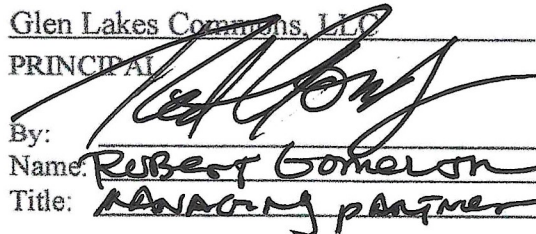 Glen Lakes Commons, LLC
PRINCIPAL
By:
Name: Robert
Title: Managing Partner